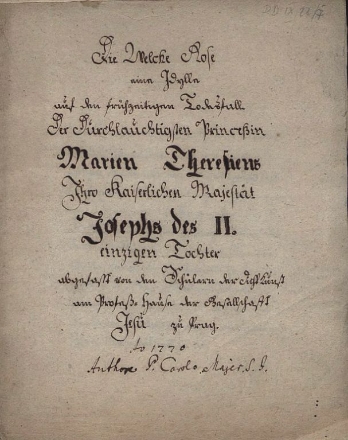 Die Welcke Rose
eine Idylle
auf den frühzeitigen Todesfall
Der Durchlauchtigsten Princeßin
Marien Theresiens
Ihro Kaiserlichen Majestät
Josephs des II.
einzigen Tochter
abgefasst von den Schülern der Dichtkunst
am Profeß-Hause der Gesellschaft
Jesu zu Prag.
Ao 1770
Authore P. Carolo Majer S. J.